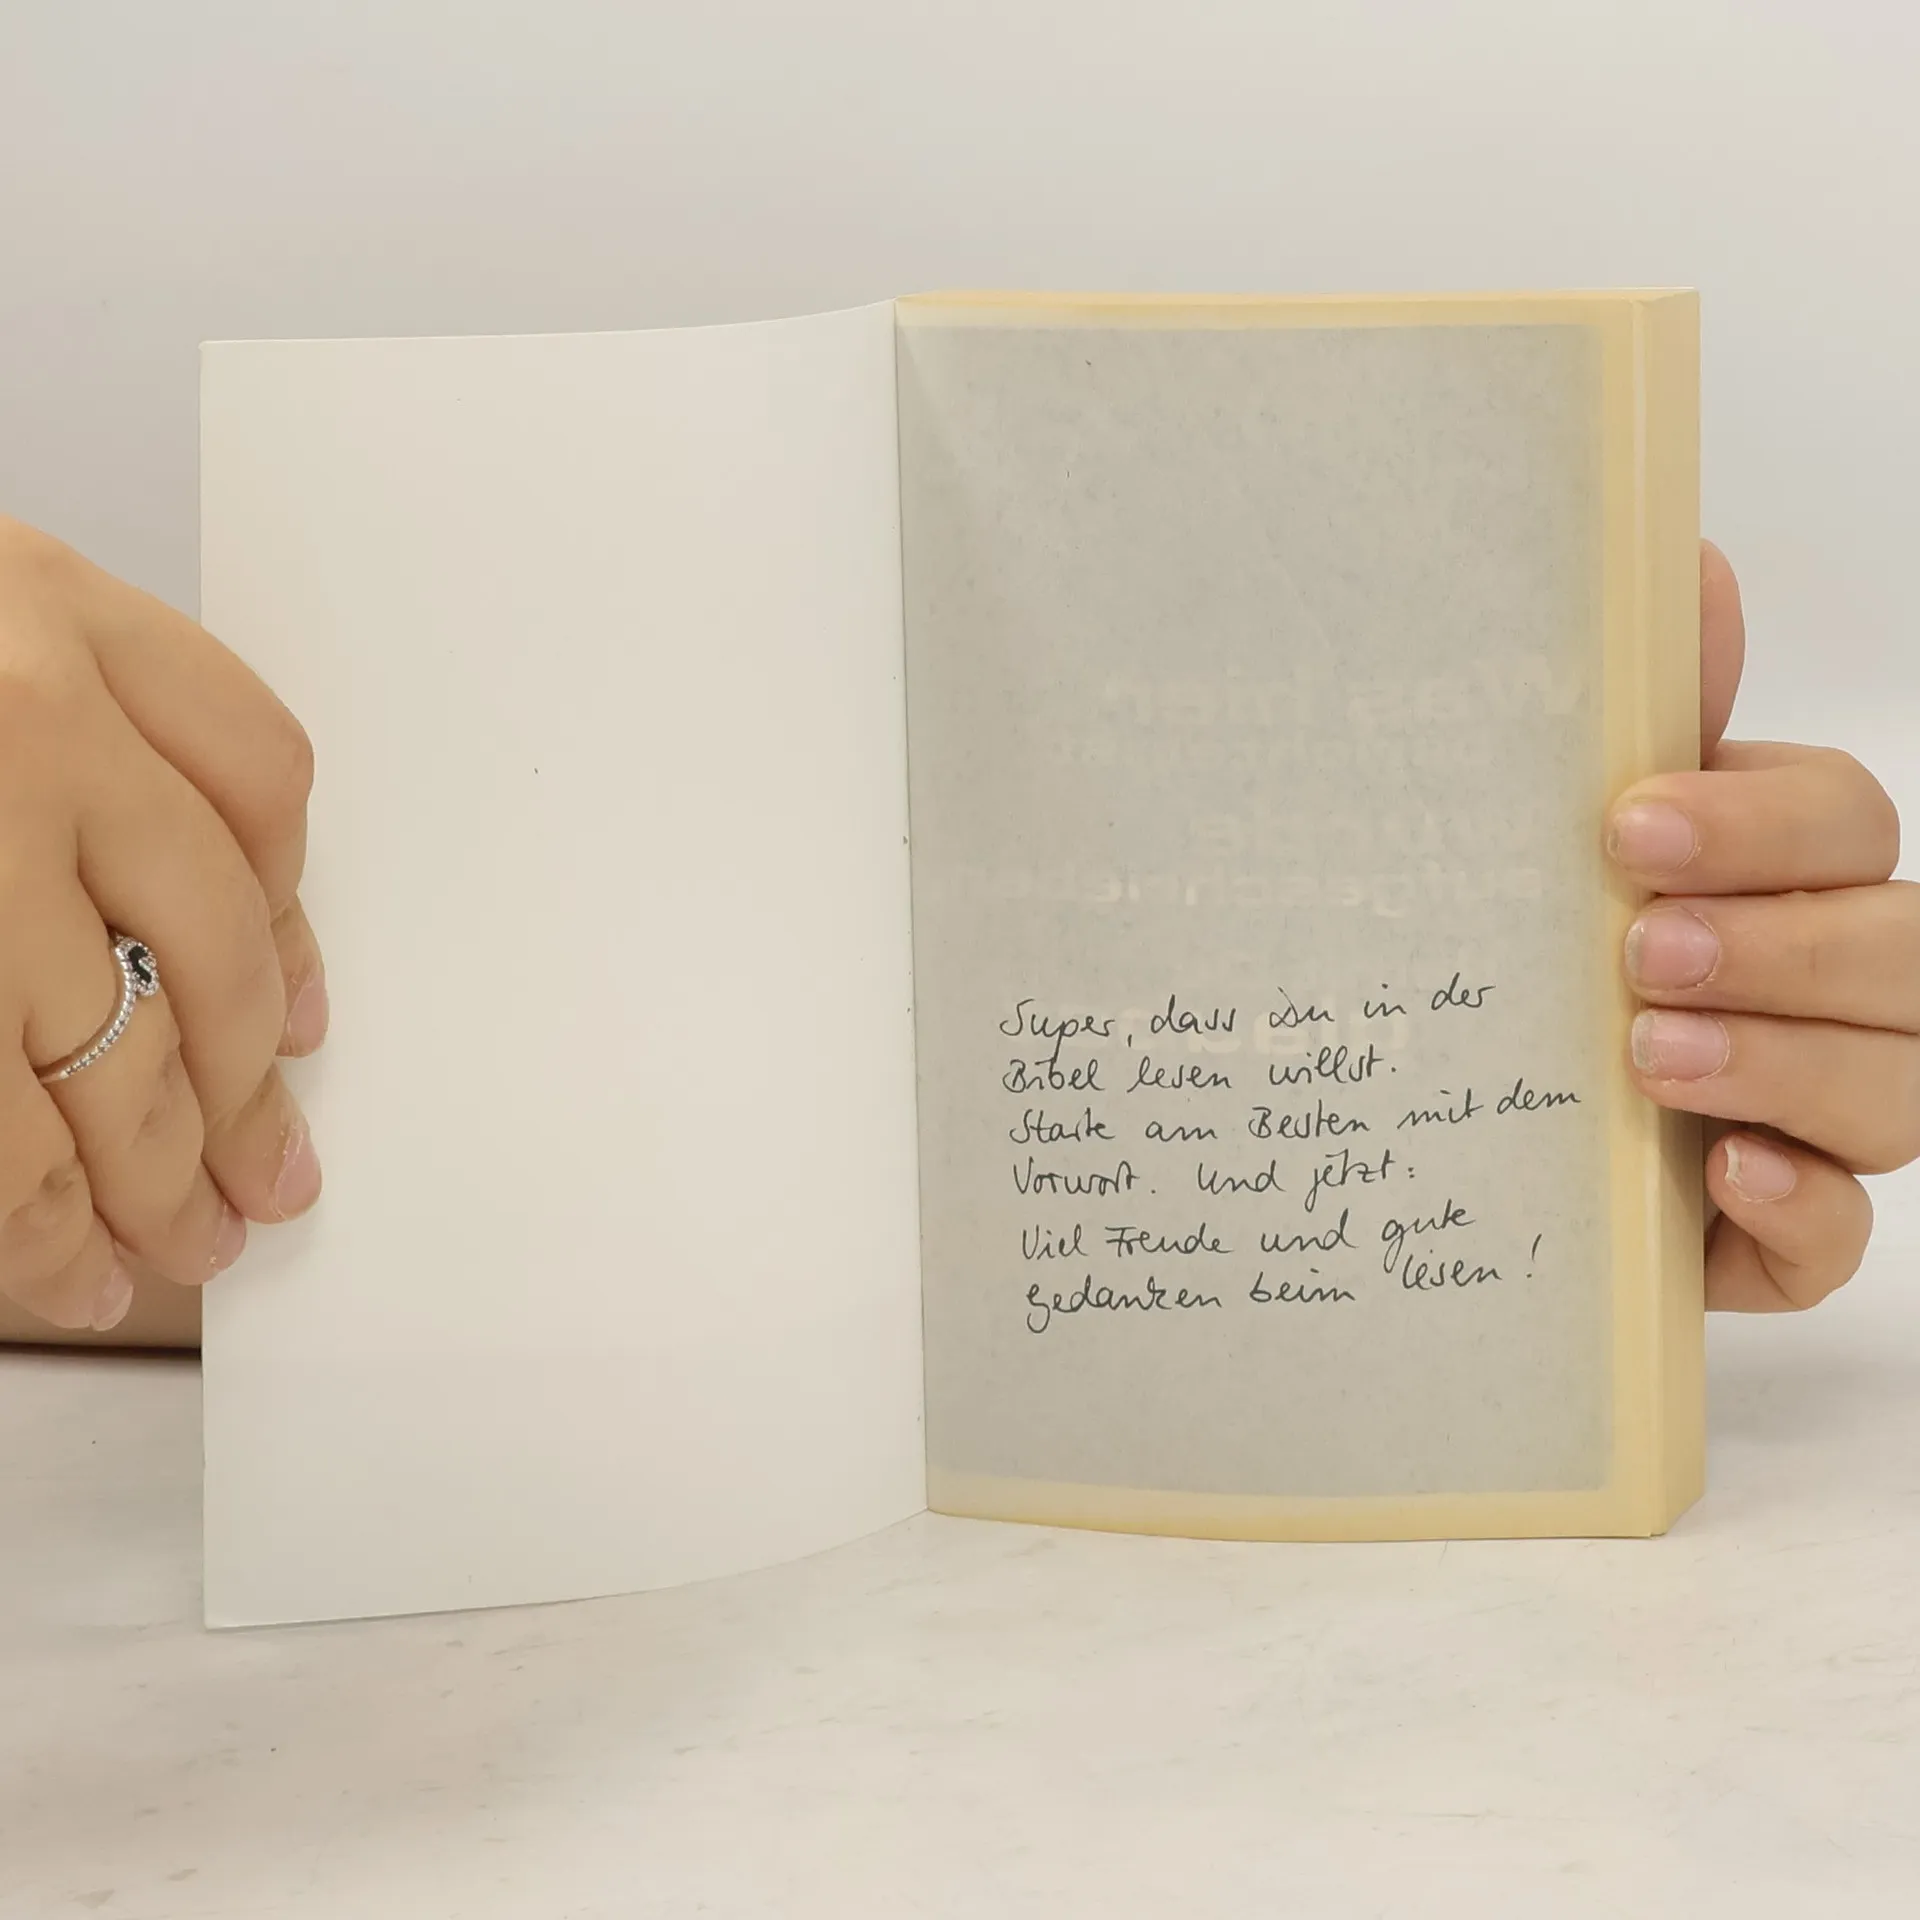 Super, dass Du in der
Bibel lesen willst.
Starte am Besten mit dem
Vorwort. Und jetzt:
Viel Freude und gute
Gedanken beim lesen!